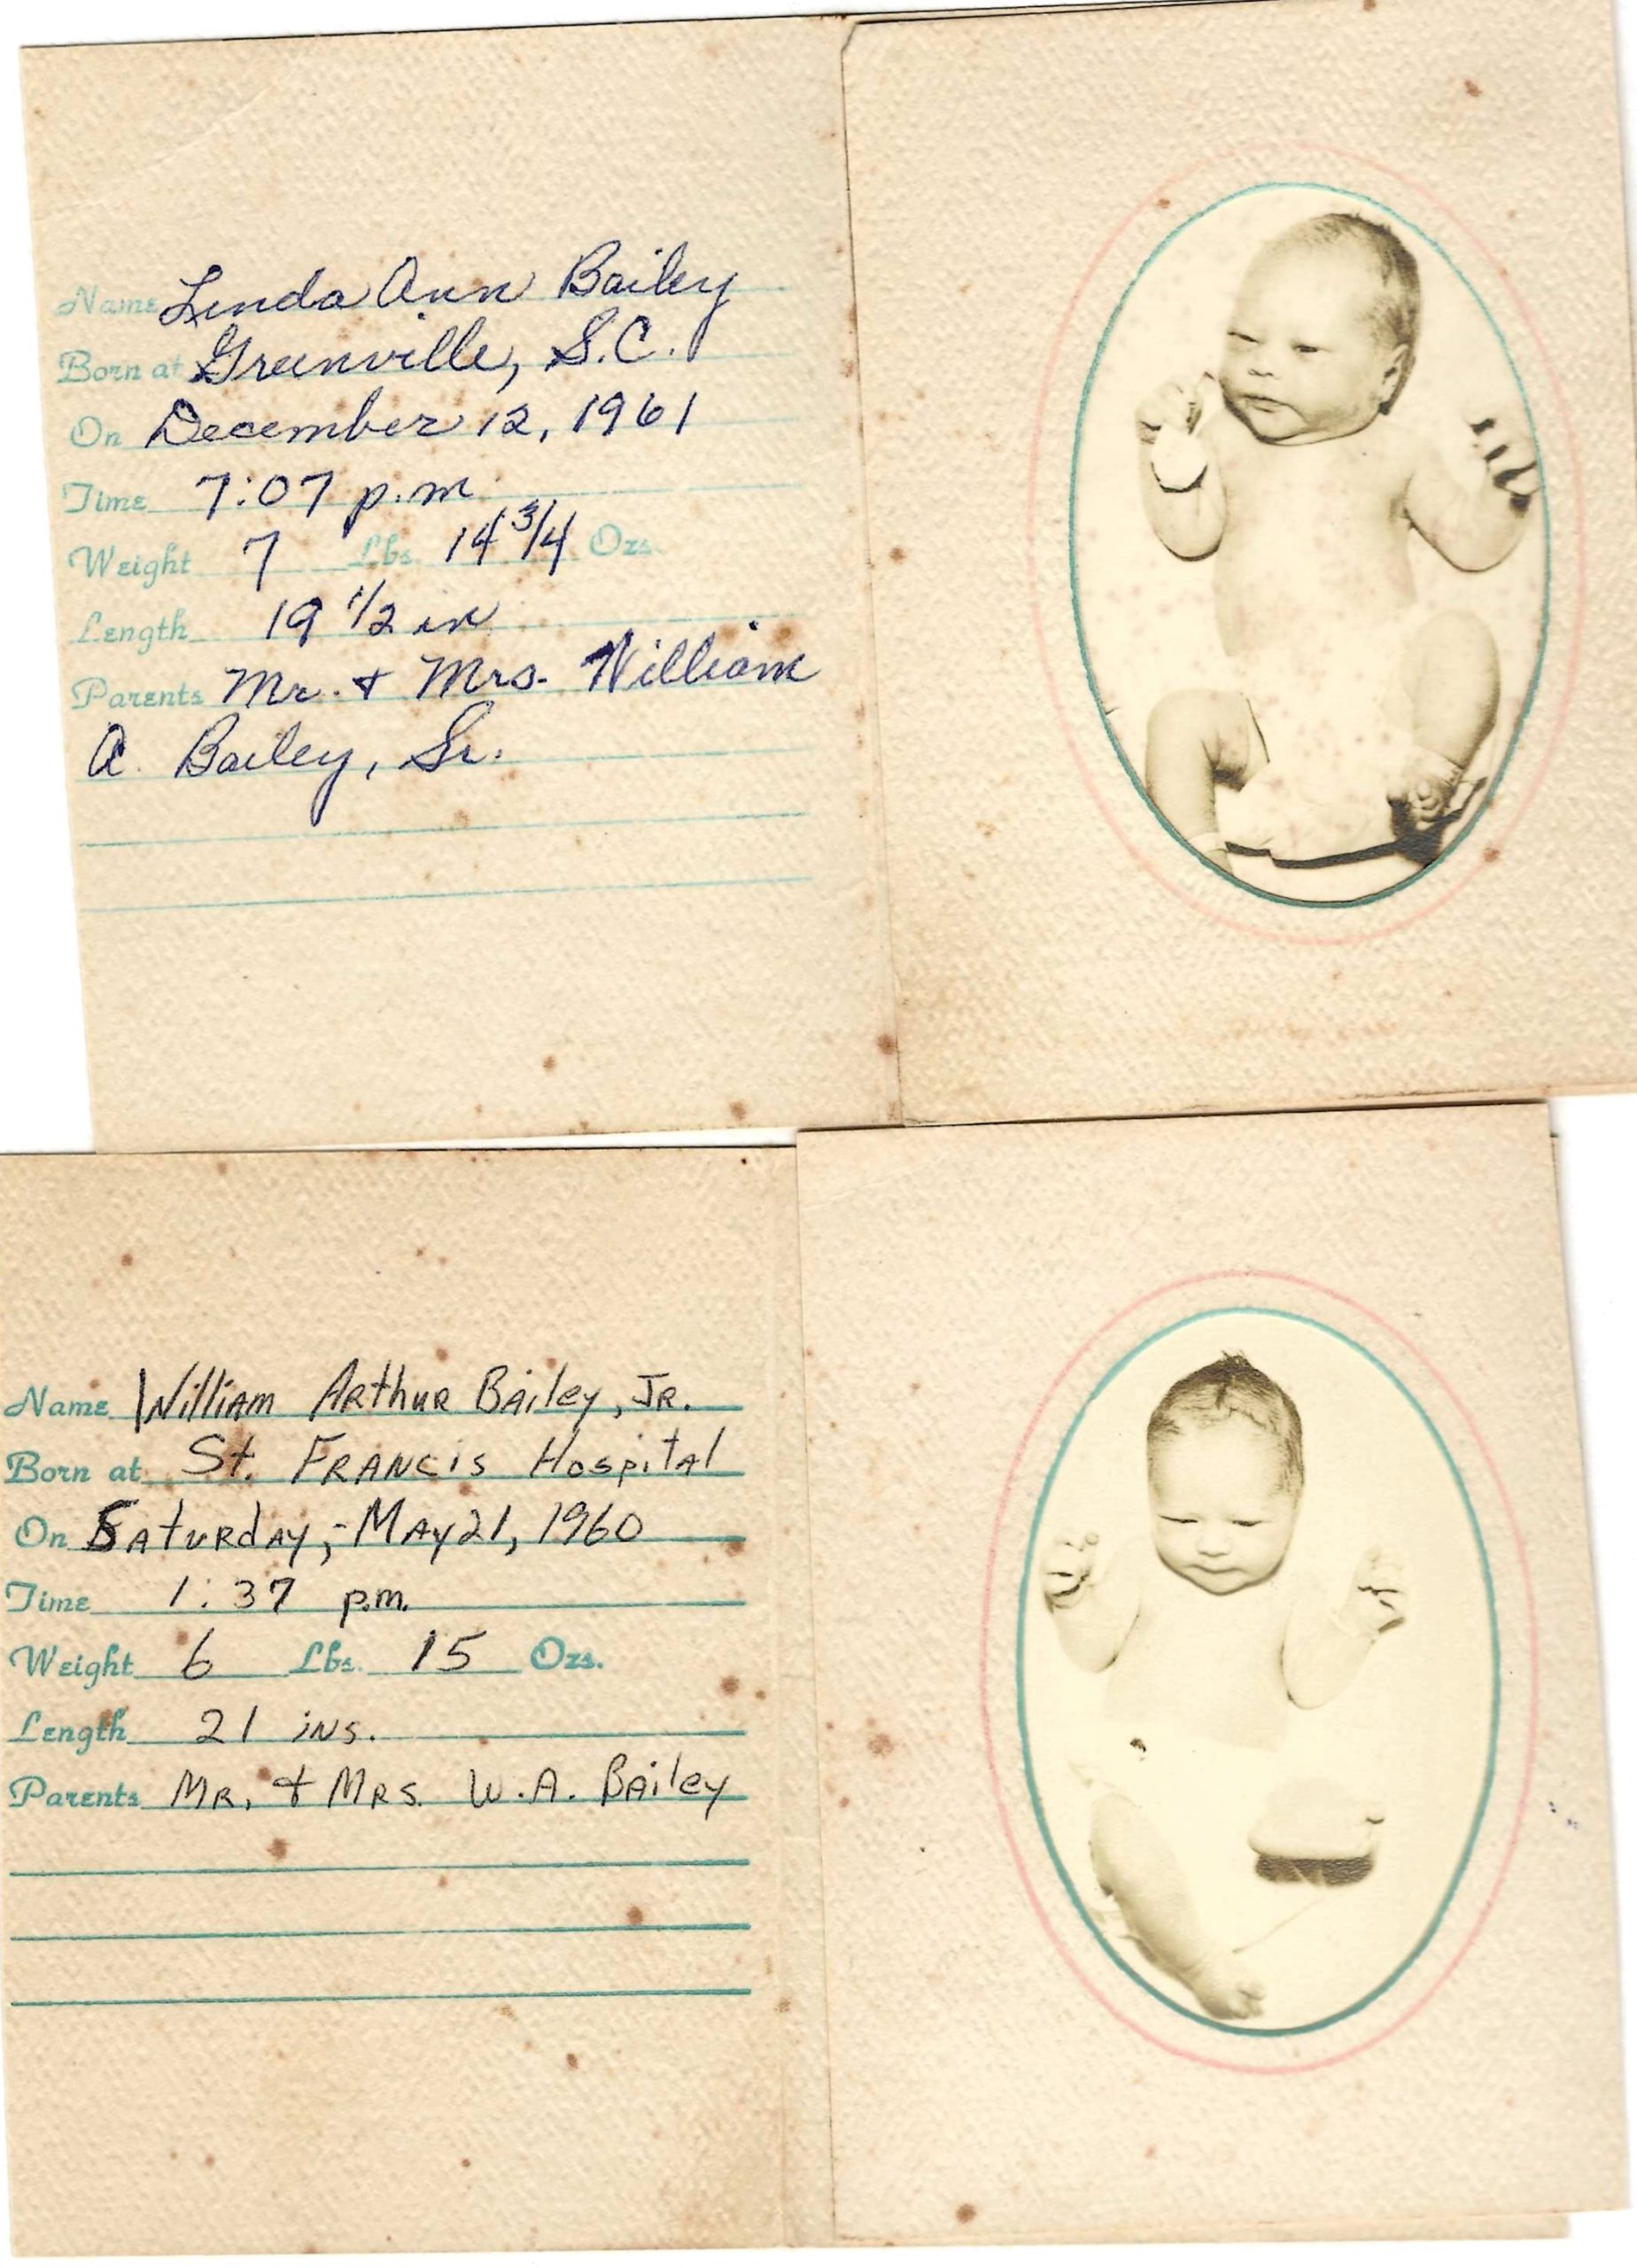 Name Linda Ann Bailey
Born at Greenville, S.C.
On December 12, 1961
Time 7:07 p.m.
Weight 7 Lbs. 14 3/4 Ozs.
Length 19 1/2 in
Parents Mr. & Mrs. William
A. Bailey, Sr.
Name William Arthur Bailey, Jr.
Born at St. Francis Hospital
On Saturday, - May 21, 1960
Time 1:37 p.m.
Weight 6 Lbs. 15 Ozs.
Length 21 ins.
Parents Mr. & Mrs. W.A. Bailey